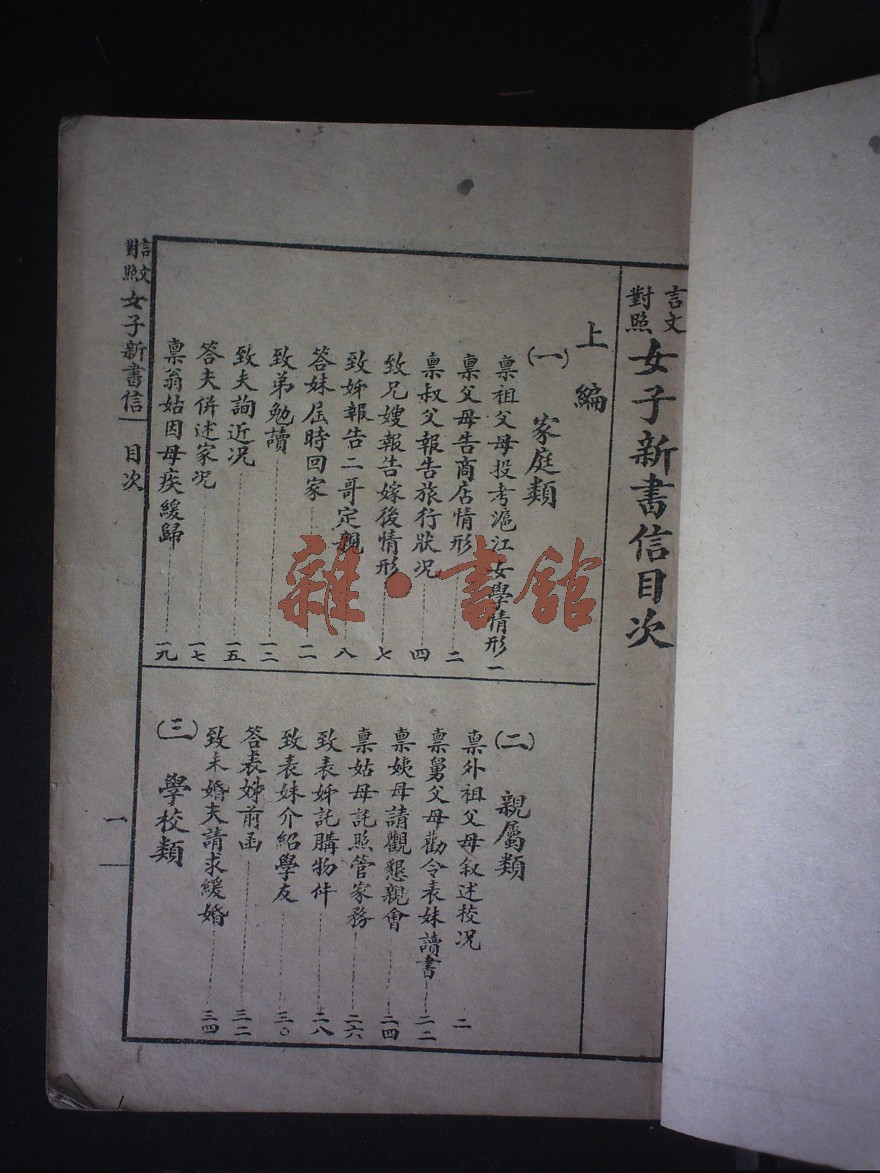 言文對照女子新書信目次
上編
(一)家庭類
禀祖父母投考滬江女學情形 一
禀父母告商店情形 二
禀叔父報告旅行狀况 四
致兄嫂報告嫁後情形 七
致姊報告二哥定親 八
答妹屆時回家
致弟勉讀 一二
致夫詢近况 一五
答夫併述家况 一七
禀翁姑因母疾緩歸 一九
(二)親屬類
禀外祖父母叙述校况
禀舅父母勸令表妹讀書 二二
禀姨母請觀懇親會 二四
禀姑母託照管家務 二六
致表姊託購物件 二八
致表妹介紹學友 三〇
答表姊前函 三二
致未婚夫請求緩婚 三四
(三)學校類
言文對照女子新書信 目次
一
雜·書館